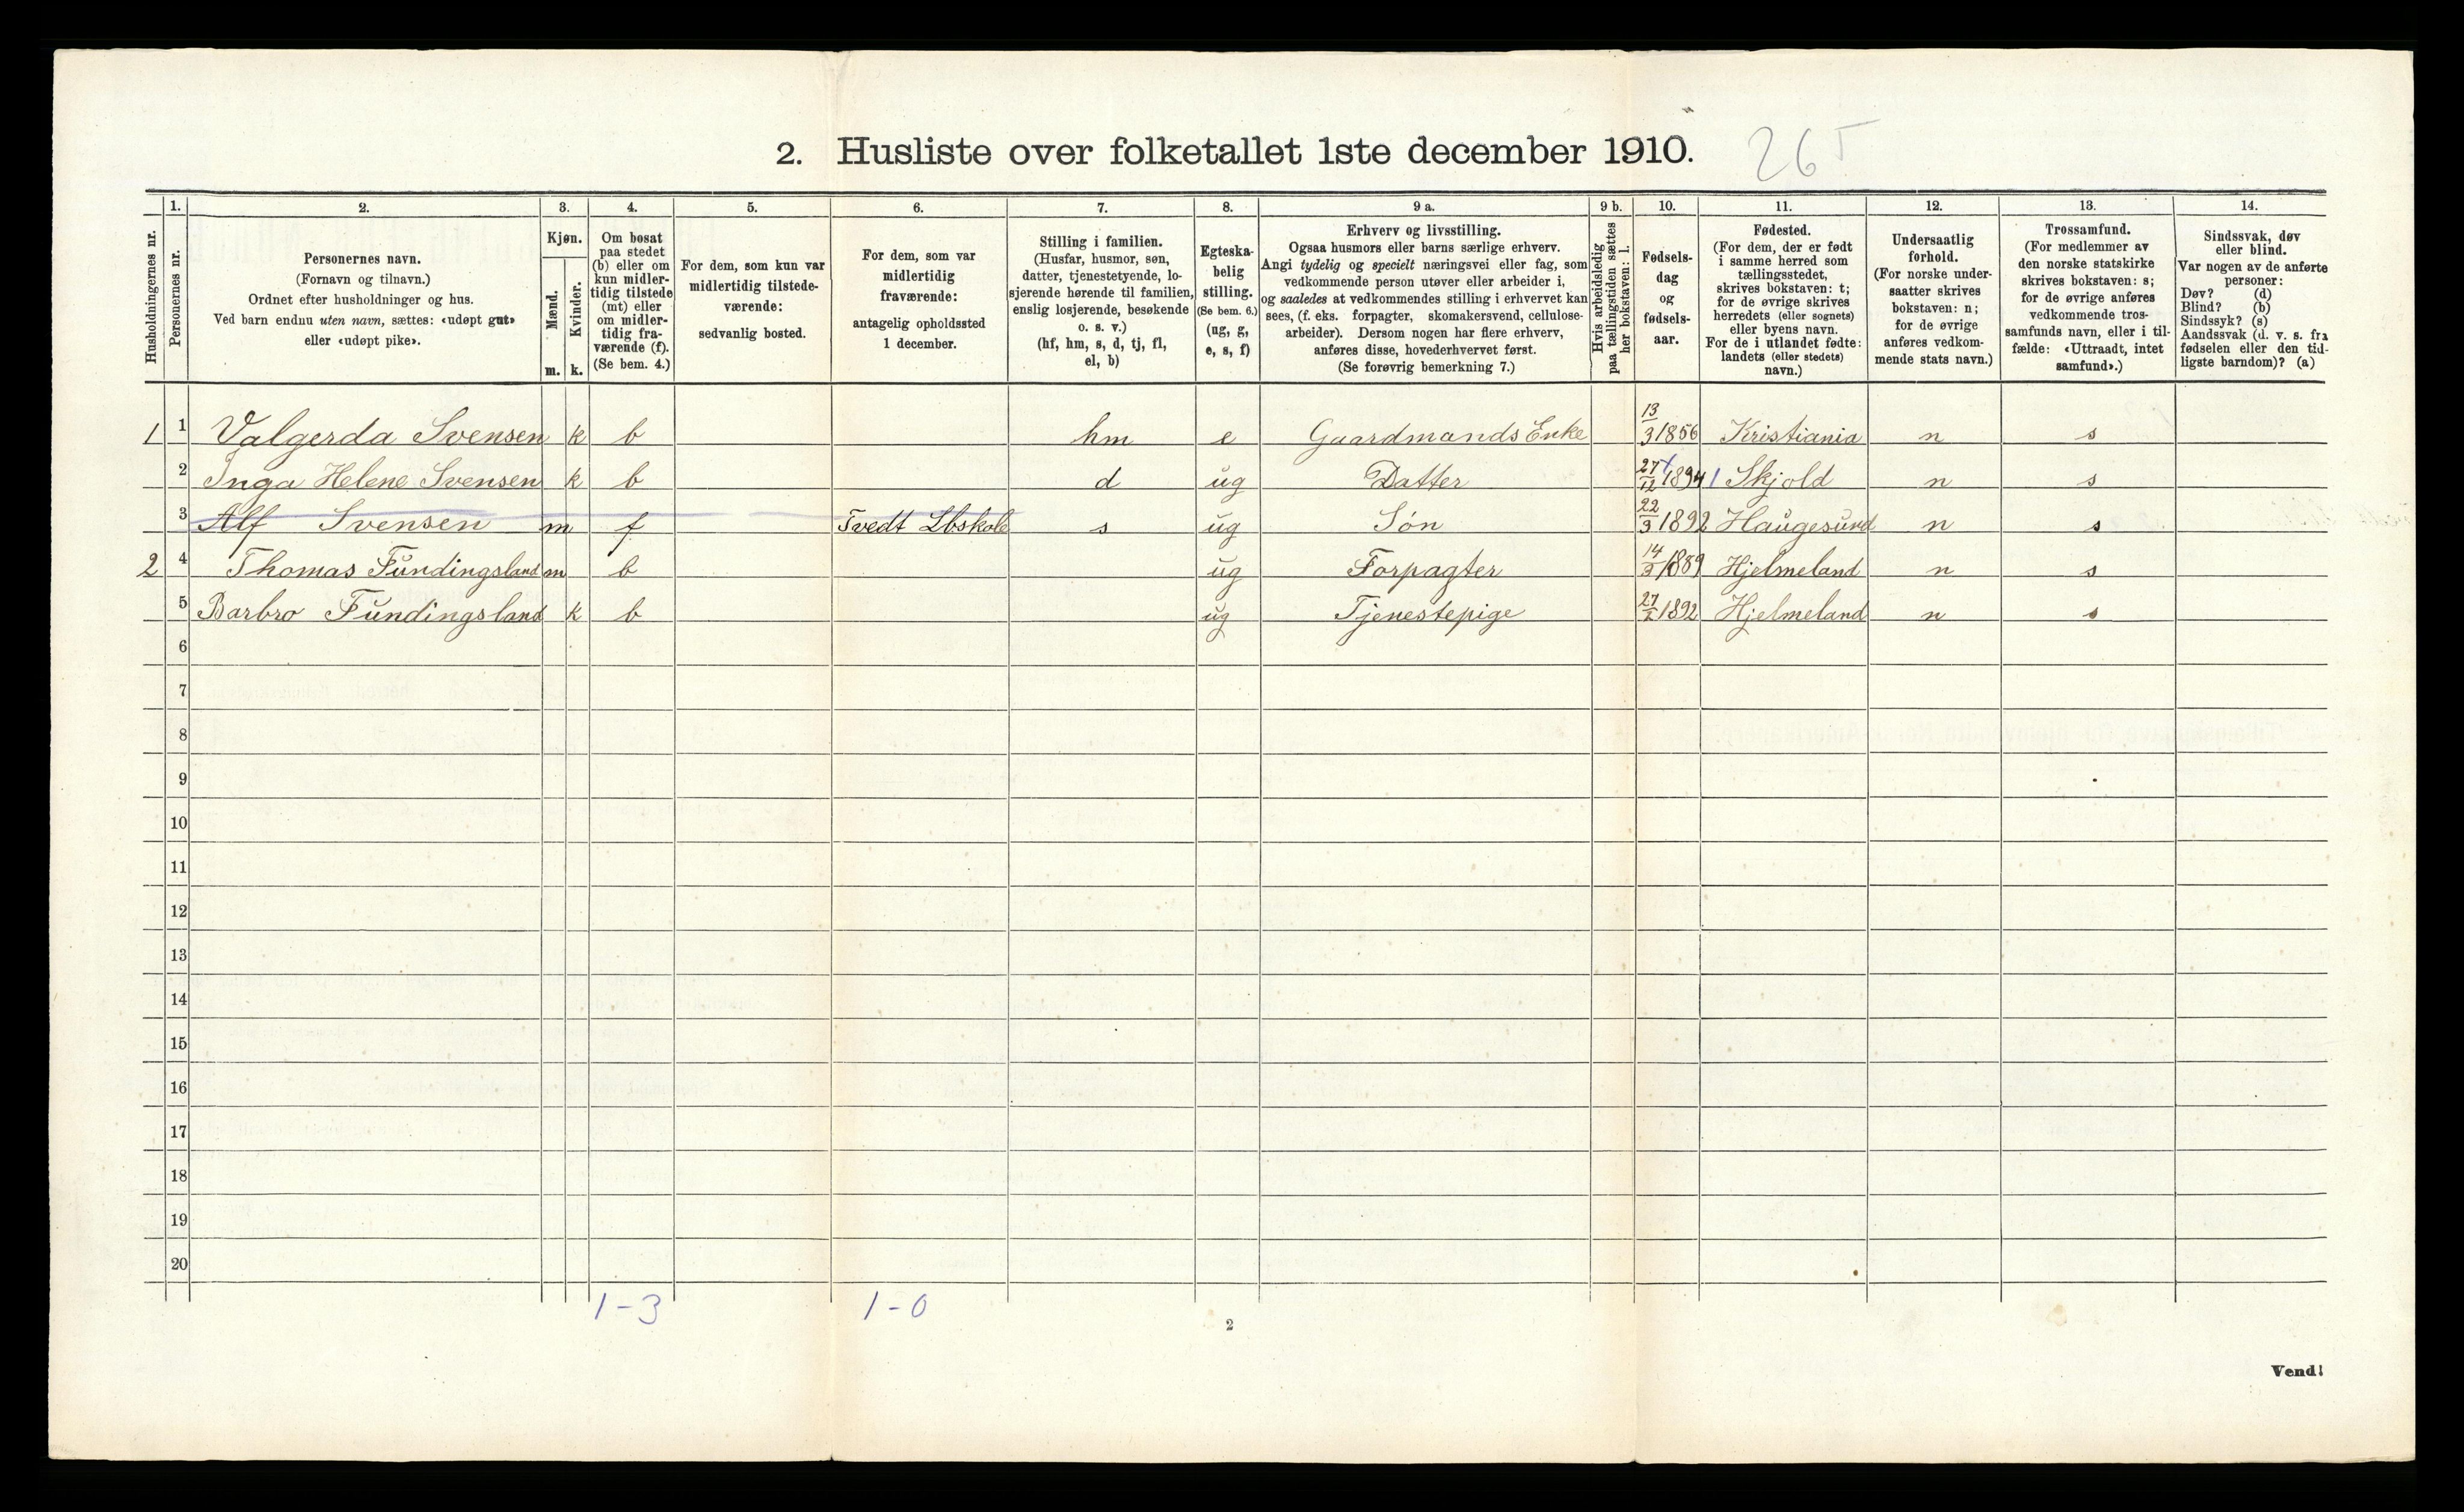 2. Husliste over folketallet 1ste december 1910.
265
Husholdningernes nr.
1.
Personernes nr.
2.
Personernes navn.
(Fornavn og tilnavn.)
Ordnet efter husholdninger og hus.
Ved barn endnu uten navn, sættes: «udøpt gut»
eller «udøpt pike».
3.
Kjøn.
Mænd.
Kvinder.
m. k.
4.
Om bosat
paa stedet
(b) eller om
kun midler-
tidig tilstede
(mt) eller
om midler-
tidig fra-
værende (f).
(Se bem. 4.)
5.
For dem, som kun var
midlertidig tilstede-
værende:
sedvanlig bosted.
6.
For dem, som var
midlertidig
fraværende:
antagelig opholdssted
1 december.
7.
Stilling i familien.
(Husfar, husmor, søn,
datter, tjenestetyende, lo-
sjerende hørende til familien,
enslig losjerende, besøkende
o. s. v.)
(hf, hm, s, d, tj, fl,
el, b)
8.
Egteska-
belig
stilling.
(Se bem. 6.)
(ug, g,
e, s, f)
9 a.
Erhverv og livsstilling.
Ogsaa husmors eller barns særlige erhverv.
Angi tydelig og specielt næringsvei eller fag, som
vedkommende person utøver eller arbeider i,
og saaledes at vedkommendes stilling i erhvervet kan
sees, (f. eks. forpagter, skomakersvend, cellulose-
arbeider). Dersom nogen har flere erhverv,
anføres disse, hovederhvervet først.
(Se forøvrig bemerkning 7.)
9 b.
Hvis arbeidsledig
paa tællingstiden sættes
her bokstaven: l.
10.
Fødsels-
dag
og
fødsels-
aar.
11.
Fødested.
(For dem, der er født
i samme herred som
tællingsstedet,
skrives bokstaven: t;
for de øvrige skrives
herredets (eller sognets)
eller byens navn.
For de i utlandet fødte:
landets (eller stedets)
navn.)
12.
Undersaatlig
forhold.
(For norske under-
saatter skrives
bokstaven: n;
for de øvrige
anføres vedkom-
mende stats navn.)
13.
Trossamfund.
(For medlemmer av
den norske statskirke
skrives bokstaven: s;
for de øvrige anføres
vedkommende tros-
samfunds navn, eller i til-
fælde: «Uttraadt, intet
samfund».)
14.
Sindssvak, døv
eller blind.
Var nogen av de anførte
personer:
Døv? (d)
Blind? (b)
Sindssyk? (s)
Aandssvak (d. v. s. fra
fødselen eller den tid-
ligste barndom)? (a)
1 1 Valgerda Svensen k b hm e Gaardmands Enke 13/3 1856 Kristiania n s
2 Inga Helene Svensen k b d ug Datter 27/12 1894 Skjold n s
3 Alf Svensen m f Tvedt Lbskole s ug Søn 22/3 1892 Haugesund n s
2 4 Thomas Fundingsland m b ug Forpagter 14/3 1889 Hjelmeland n s
5 Barbro Fundingsland k b ug Tjenestepige 27/2 1892 Hjelmeland n s
6
7
8
9
10
11
12
13
14
15
16
17
18
19
20
1-3 1-0
2
Vend!